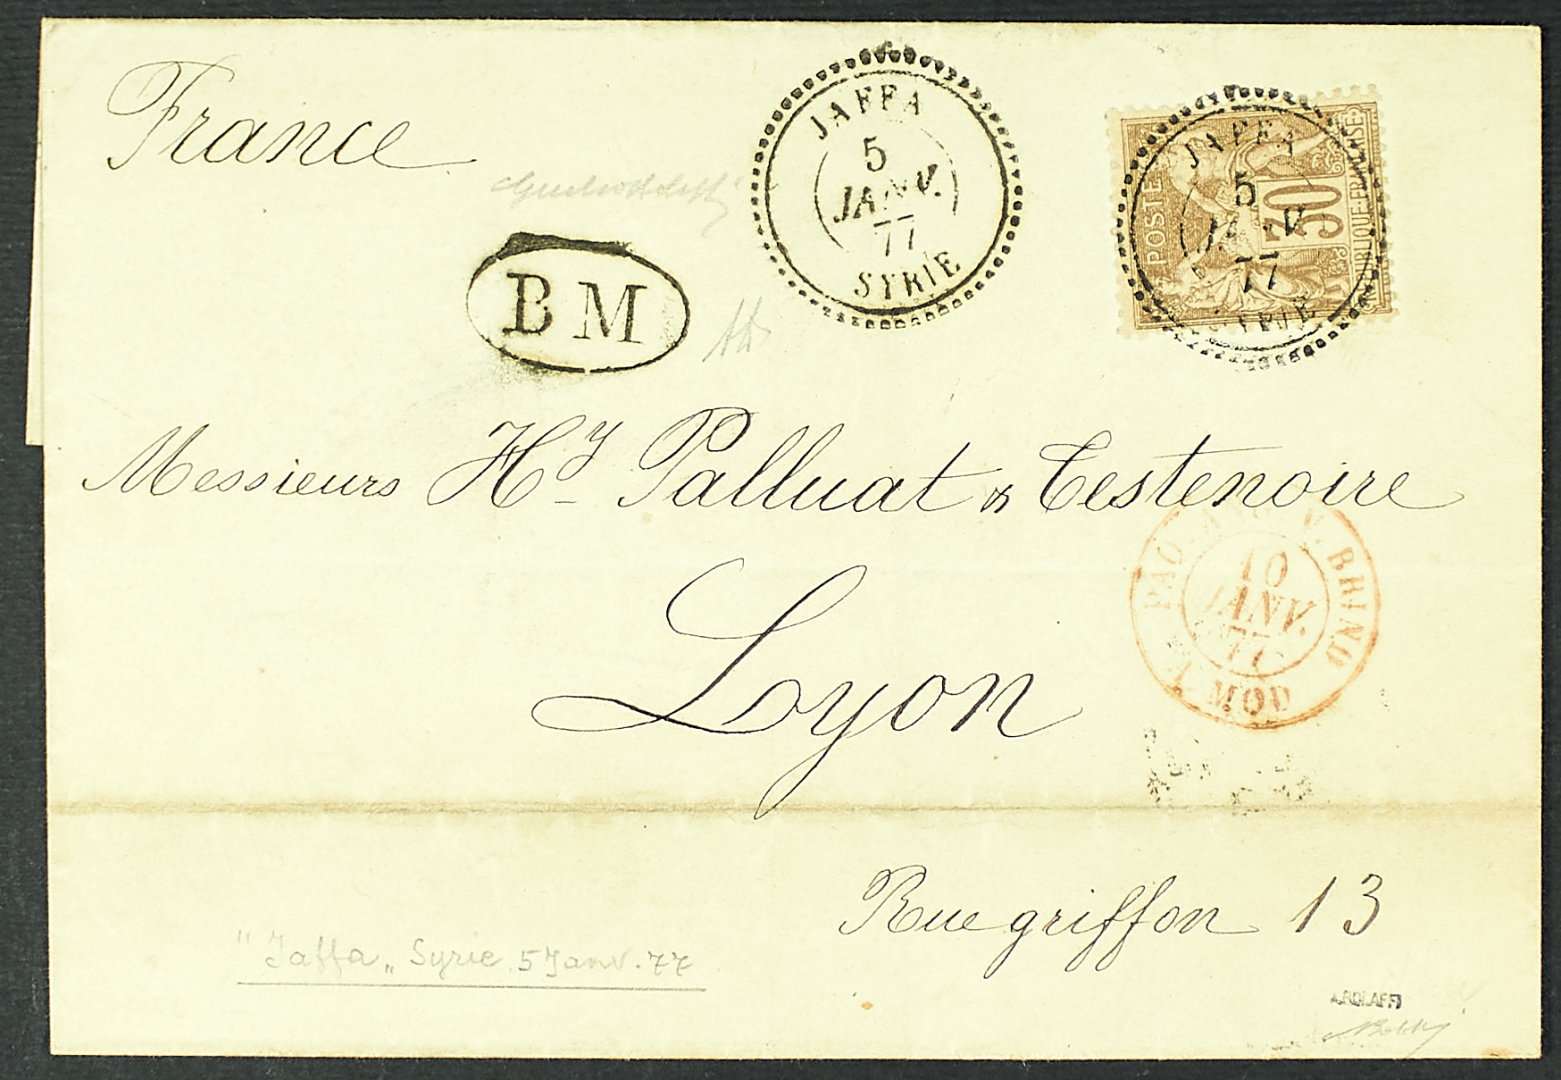 France
JAFFA
5
JANV.
77
SYRIE
POSTE
30
JAFFA
5
JANV.
77
SYRIE
B M
Messieurs Hy Palluat & Testenoire
Lyon
PAQ. V. BRIND
10
JANV.
77
V. MOD
Rue griffon 13
"Jaffa„ Syrie 5 Janv. 77
A.BOLAFFI